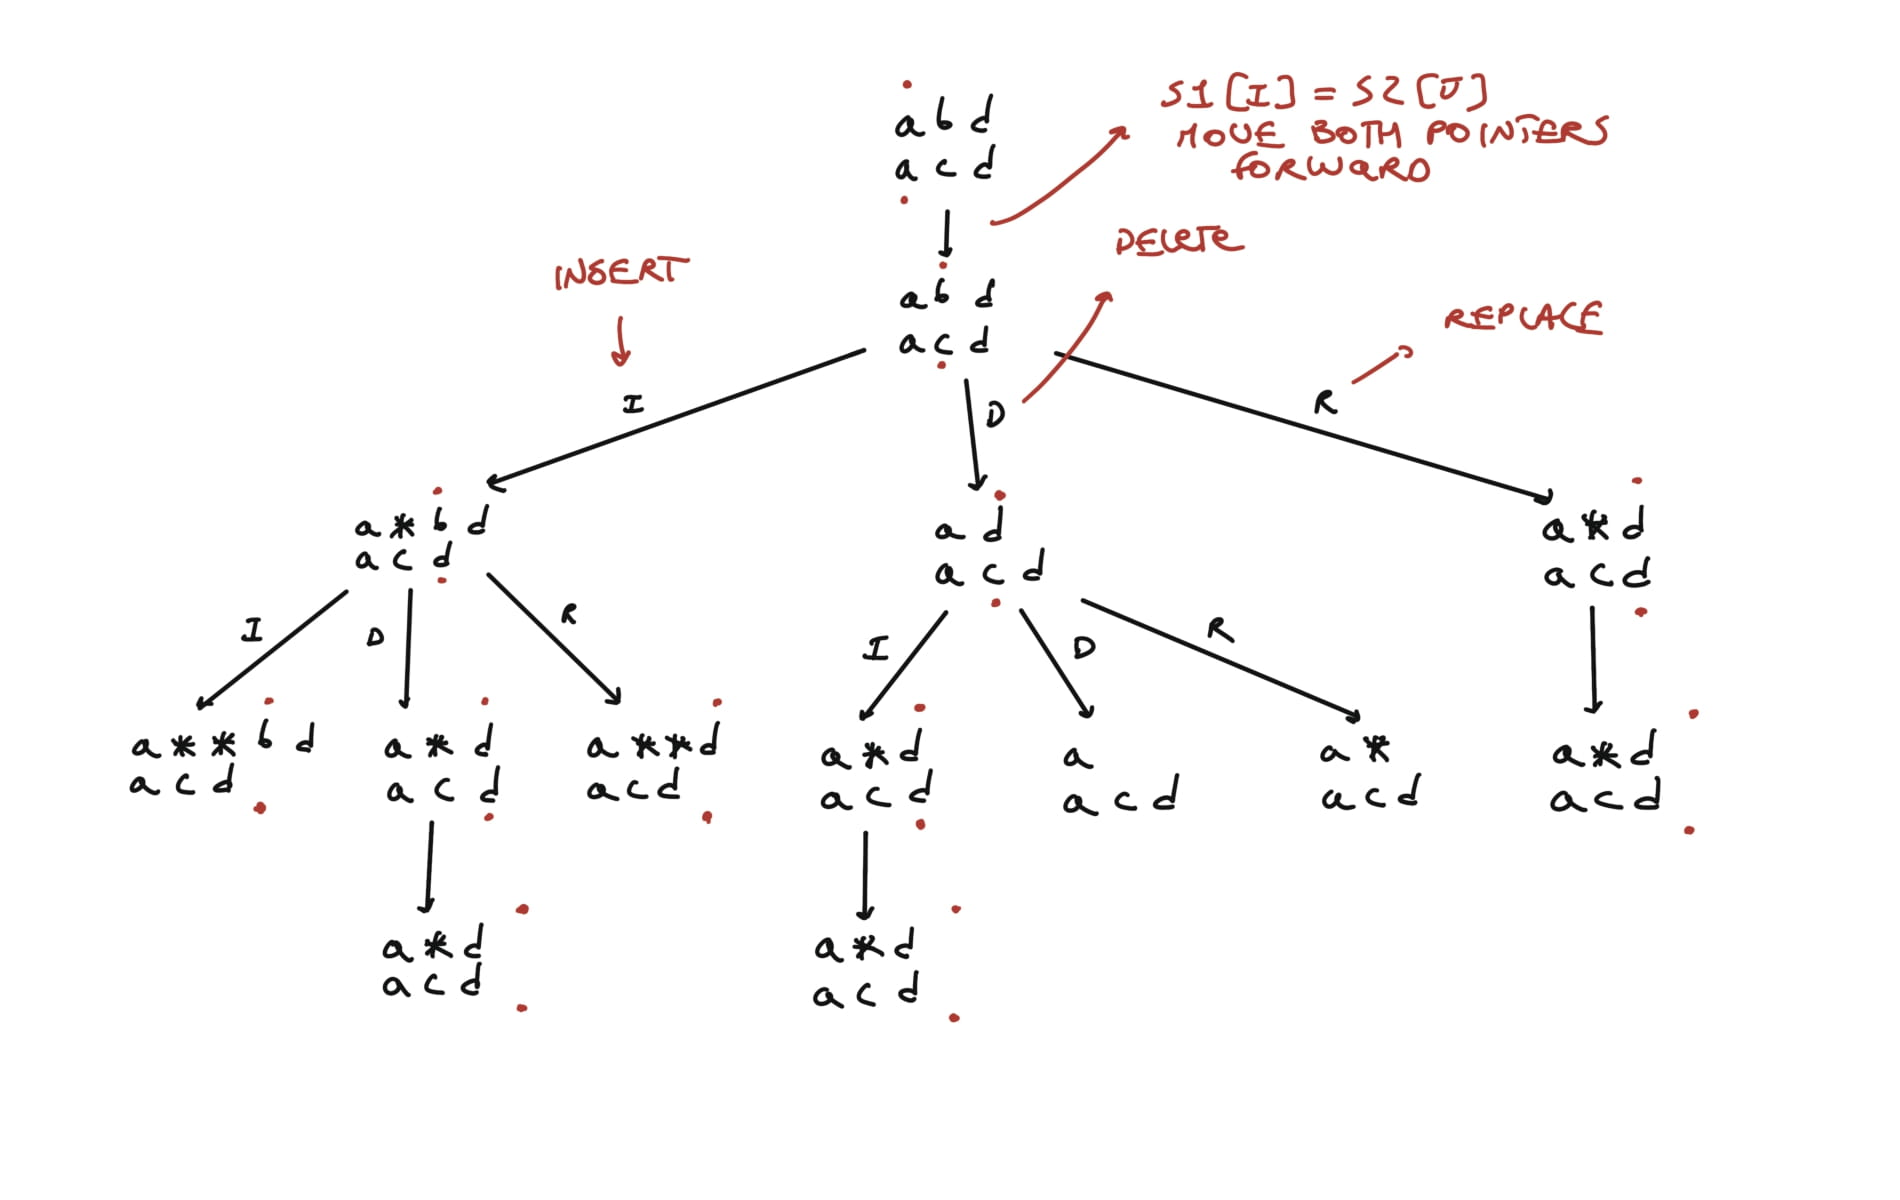 S1[I] = S2[J]
MOVE BOTH POINTERS
FORWARD
a b d
a c d
DELETE
INSERT
a b d
a c d
REPLACE
I
D
R
a * b d
a c d
a d
a c d
a * d
a c d
I
D
R
I
D
R
a * * b d
a c d
a * d
a c d
a * * d
a c d
a * d
a c d
a
a c d
a *
a c d
a * d
a c d
a * d
a c d
a * d
a c d